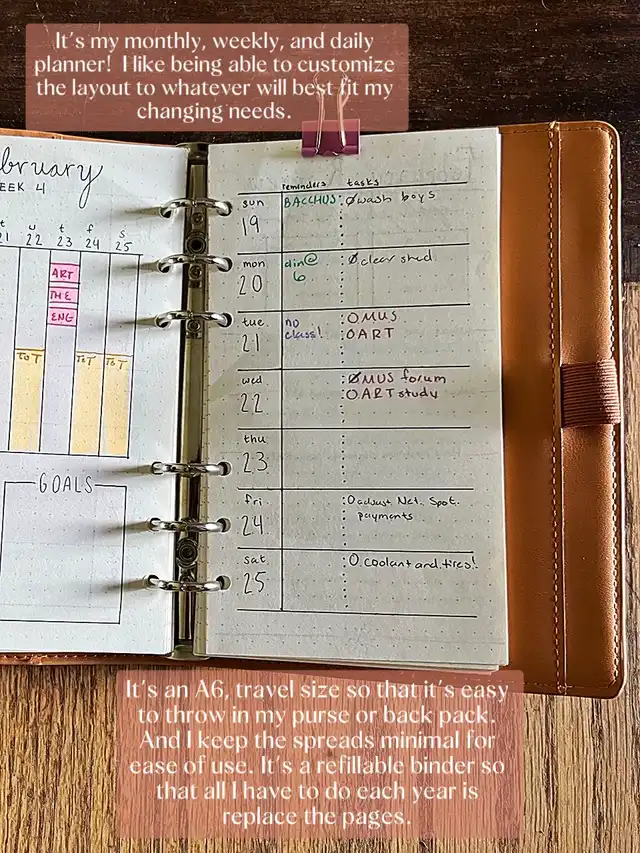 It's my monthly, weekly, and daily
planner! I like being able to customize
the layout to whatever will best fit my
changing needs.
bruary
EEK 4
t w t f s
21 22 23 24 25
ART
THE
ENG
TOT TOT TOT
GOALS
reminders tasks
sun 19 BACCHUS wash boys
mon 20 din@ 6 clear shed
tue 21 no class! MUS
ART
wed 22 MUS forum
ART study
thu 23
fri 24 adjust Net. Spot.
payments
sat 25 coolant and tires!
It's an A6, travel size so that it's easy
to throw in my purse or back pack.
And I keep the spreads minimal for
ease of use. It's a refillable binder so
that all I have to do each year is
replace the pages.